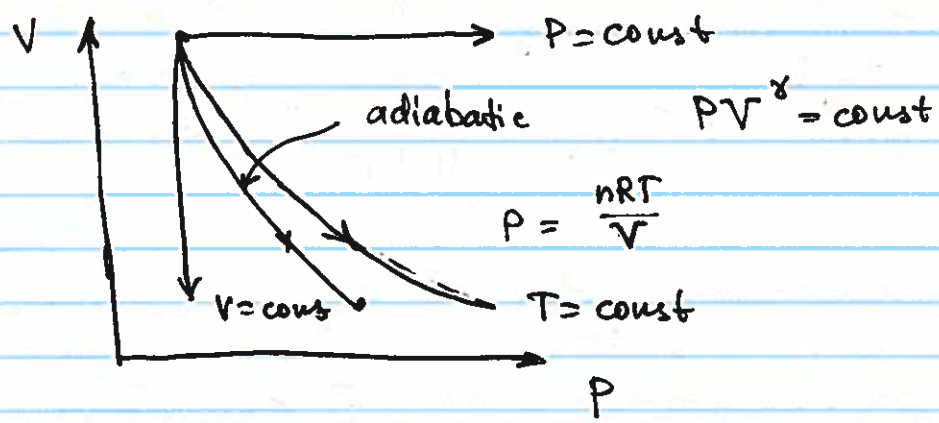 V
P = const
adiabatic
PV^γ = const
P = nRT/V
V = cons
T = const
P